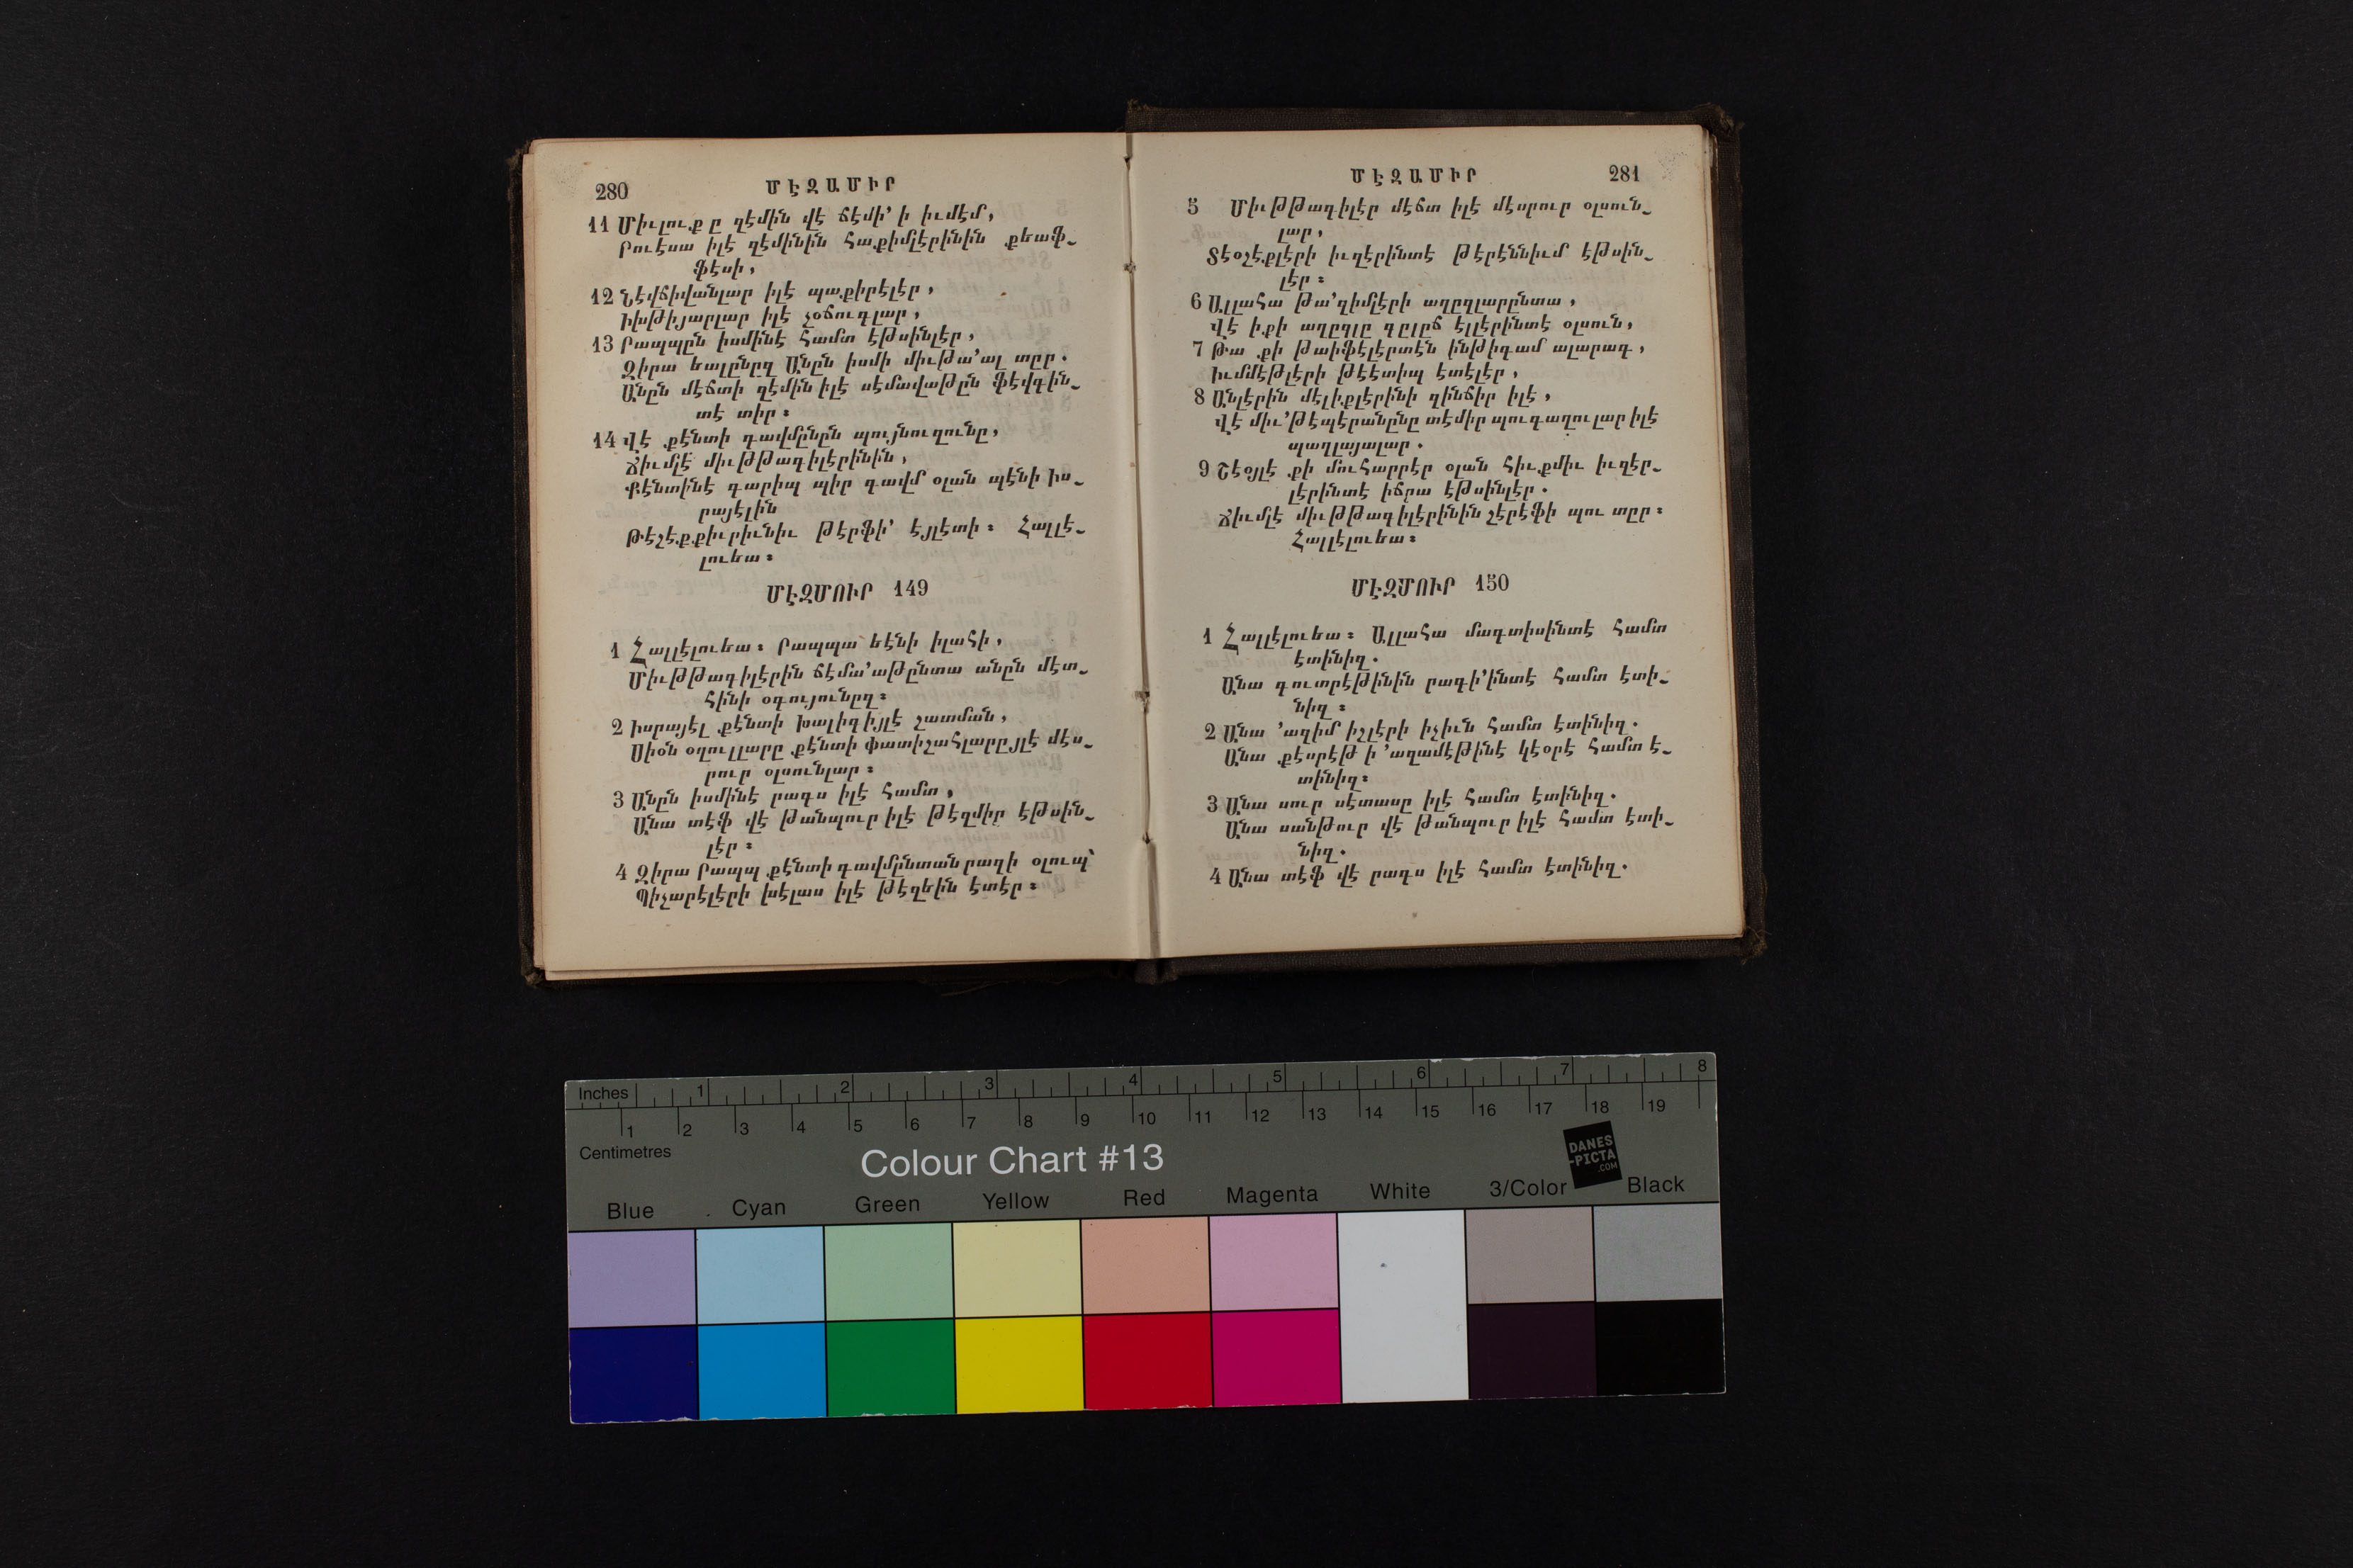 280 ՄԷԶԱՄԻՐ
11 Միւլուքը զէմին վէ ճէմի՚ի իւմէմ,
Րուէսա իլէ զէմինին հաքիմլէրինին քեաֆ֊
ֆէսի,
12 Նէվճիվանլար իլէ պաքիրէլէր,
Իխթիյարլար իլէ չօճուգլար,
13 Րապպըն իսմինէ համտ էթսինլէր,
Զիրա եալընըզ Անըն իսմի միւթա՚ալ տըր.
Անըն մէճտի զէմին իլէ սէմավաթըն ֆէվգին֊
տէ տիր։
14 Վէ քէնտի գավմընըն պույնուզունը,
Ճիւմլէ միւթթագիլէրինին,
Քէնտինէ գարիպ պիր գավմ օլան պէնի Իս֊
րայէլին
Թէշէքքիւրիւնիւ թէրֆի՚ էյլէտի։ Հալլէ֊
լուեա։
ՄԷԶՄՈՒՐ 149
1 Հալլէլուեա։ Րապպա եէնի իլահի,
Միւթթագիլէրին ճէմա՚աթընտա անըն մէտ֊
հինի օգույունըզ։
2 Իսրայէլ քէնտի խալիզիյլէ շատման,
Սիօն օղուլլարը քէնտի փատիշահլարըյլէ մէս֊
րուր օլսունլար։
3 Անըն իսմինէ րագս իլէ համտ,
Անա տէֆ վէ թանպուր իլէ թէզմիր էթսին֊
լէր։
4 Զիրա Րապպ քէնտի գավմընտան րազի օլուպ՝
Պիչարէլէրի խէլաս իլէ թէզեին էտէր։
ՄԷԶԱՄԻՐ 281
5 Միւթթագիլէր մէճտ իլէ մէսրուր օլսուն֊
լար,
Տէօշէքլէրի իւզէրինտէ թէրէննիւմ էթսին֊
լէր։
6 Ալլահա թա՚զիմլէրի աղըզլարընտա,
Վէ իքի աղըզլը գըլըճ էլլէրինտէ օլսուն,
7 Թա քի թաիֆէլէրտէն ինթիգամ ալարագ,
Իւմմէթլէրի թէէտիպ էտէլէր,
8 Անլէրին մէլիքլէրինի զինճիր իլէ,
Վէ միւ՚թէպէրանընը տէմիր պուգաղուլար իլէ
պաղլայալար.
9 Շէօյլէ քի մուհարրէր օլան հիւքմիւ իւզէր֊
լէրինտէ իճրա էթսինլէր.
Ճիւմլէ միւթթագիլէրինին շէրէֆի պու տըր։
Հալլէլուեա։
ՄԷԶՄՈՒՐ 150
1 Հալլէլուեա։ Ալլահա մագտիսինտէ համտ
էտինիզ.
Անա գուտրէթինին րագի՚ինտէ համտ էտի֊
նիզ։
2 Անա ՚ազիմ իշլէրի իչիւն համտ էտինիզ.
Անա քէսրէթ ի ՚ազամէթինէ կէօրէ համտ է֊
տինիզ։
3 Անա սուր սէտասը իլէ համտ էտինիզ.
Անա սանթուր վէ թանպուր իլէ համտ էտի֊
նիզ.
4 Անա տէֆ վէ րագս իլէ համտ էտինիզ.
Inches 1 2 3 4 5 6 7 8
1 2 3 4 5 6 7 8 9 10 11 12 13 14 15 16 17 18 19
Centimetres
Colour Chart #13
DANES
-PICTA
.COM
Blue Cyan Green Yellow Red Magenta White 3/Color Black